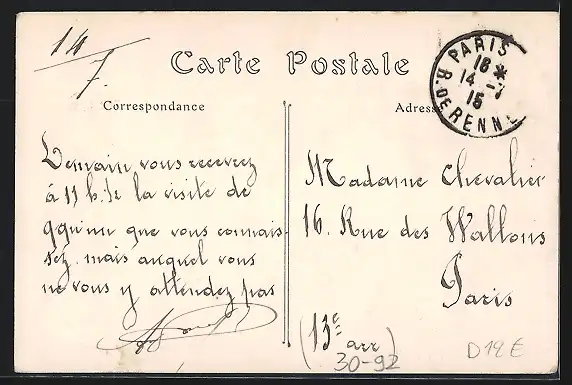 14/7.
Carte Postale
Correspondance
Adress
PARIS
18 *
14 -7
15
R. DE RENNE
Demain vous recevrez
à 11 h. ½ la visite de
qqu'un que vous connais-
sez mais auquel vous
ne vous y attendez pas
Madame Chevalier
16. Rue des Wallons
Paris
(13e arr)
30-92
D12E